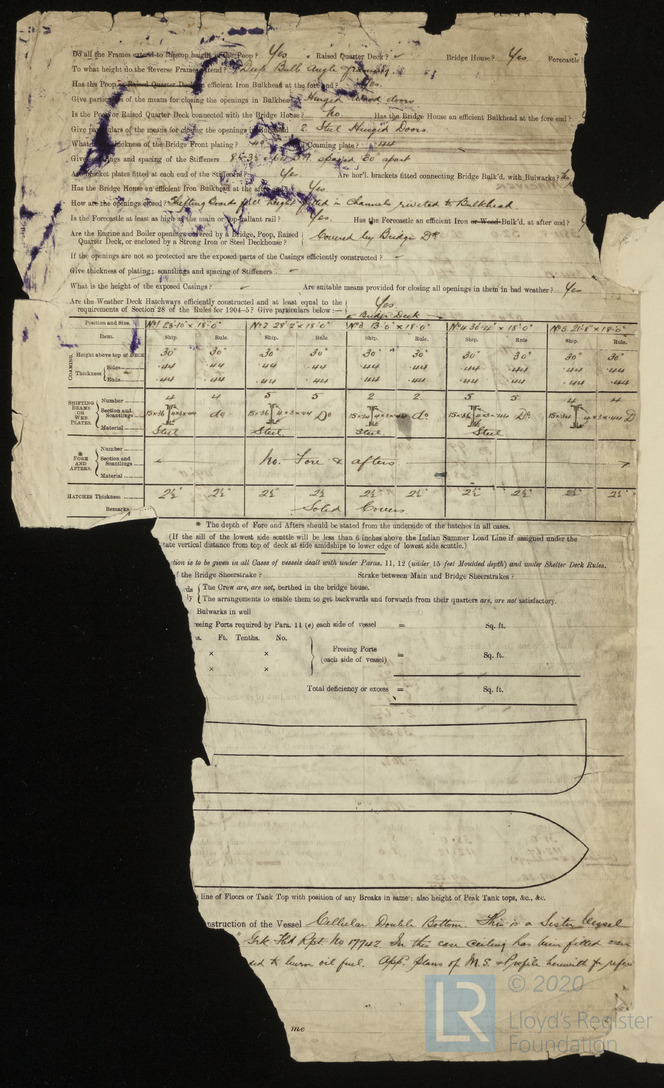 Do all the Frames extend to the top height in the Poop? Yes Raised Quarter Deck? - Bridge House? Yes Forecastle
To what height do the Reverse Frames extend? Deep Bulb Angle framing
Has the Poop or Raised Quarter Deck an efficient Iron Bulkhead at the fore end? Yes.
Give particulars of the means for closing the openings in Bulkhead Hinged doors
Is the Poop or Raised Quarter Deck connected with the Bridge House? No Has the Bridge House an efficient Bulkhead at the fore end?
Give particulars of the means for closing the openings in Bulkhead 2 Steel Hinged Doors
What is the thickness of the Bridge Front plating? Coaming plate? .44
Give scantlings and spacing of the Stiffeners spaced 30 apart
Are bracket plates fitted at each end of the Stiffeners? Yes. Are hor'l. brackets fitted connecting Bridge Bulk'd. with Bulwarks? No
Has the Bridge House an efficient Iron Bulkhead at the after end? Yes.
How are the openings closed? Shifting boards full height fitted in Channels riveted to Bulkhead
Is the Forecastle at least as high as the main or top-gallant rail? Yes. Has the Forecastle an efficient Iron or Wood Bulk'd. at after end?
Are the Engine and Boiler openings covered by a Bridge, Poop, Raised
Quarter Deck, or enclosed by a Strong Iron or Steel Deckhouse? Covered by Bridge Dk
If the openings are not so protected are the exposed parts of the Casings efficiently constructed? -
Give thickness of plating; scantlings and spacing of Stiffeners -
What is the height of the exposed Casings? - Are suitable means provided for closing all openings in them in bad weather? Yes
Are the Weather Deck Hatchways efficiently constructed and at least equal to the
requirements of Section 28 of the Rules for 1904-5? Give particulars below:— Yes.
Bridge Deck
Position and Size. No 1 23'-10" x 18'-0" No 2 28'-2" x 18'-0" No 3 13'-0" x 18'-0" No 4 x 18'-0" No 5 x 18'-0"
Item. Ship. Rule. Ship. Rule. Ship. Rule. Ship. Rule. Ship. Rule.
COAMING
Height above top of DECK 30" 30" 30" 30" 30" 30" 30" 30" 30" 30"
Thickness Sides .44 .44 .44 .44 .44 .44 .44 .44 .44 .44
Ends .44 .44 .44 .44 .44 .44 .44 .44 .44 .44
SHIFTING BEAMS OR WEB PLATES
Number 4 4 5 5 2 2 5 5 4 4
Section and Scantlings do Do do Do D
Material Steel Steel Steel Steel
* FORE AND AFTERS
Number
Section and Scantlings No. Fore & afters
Material
HATCHES Thickness 2½" 2½" 2½" 2½ 2½" 2½" 2½" 2½" 2½" 2½"
Remarks Solid Covers
* The depth of Fore and Afters should be stated from the underside of the hatches in all cases.
(If the sill of the lowest side scuttle will be less than 6 inches above the Indian Summer Load Line if assigned under the
tate vertical distance from top of deck at side amidships to lower edge of lowest side scuttle.)
tion is to be given in all Cases of vessels dealt with under Paras. 11, 12 (under 15 feet Moulded depth) and under Shelter Deck Rules.
f the Bridge Sheerstrake? Strake between Main and Bridge Sheerstrakes?
The Crew are, are not, berthed in the bridge house.
The arrangements to enable them to get backwards and forwards from their quarters are, are not satisfactory.
Bulwarks in well
reeing Ports required by Para. 11 (e) each side of vessel = Sq. ft.
s. Ft. Tenths. No.
× × Freeing Ports
(each side of vessel) = Sq. ft.
× ×
Total deficiency or excess = Sq. ft.
line of Floors or Tank Top with position of any Breaks in same; also height of Peak Tank tops, &c., &c.
nstruction of the Vessel Cellular Double Bottom. This is a Sister Vessel
Rpt No 17742 In this case ceiling has been fitted over
sed to burn oil fuel. App. plans of M.S. & Profile herewith for refere
me
© 2020
LR
Lloyd's Register
Foundation